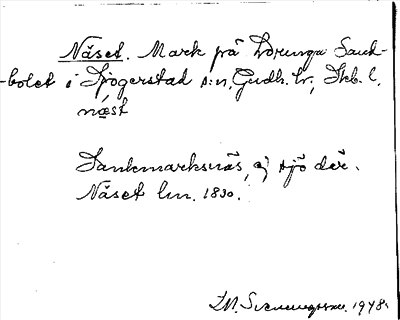 Näset. Mark på Torunga Sank-
-bolet i Spogerstad s:n, Gudh. hr; Skb. l.
næst
Sankmarksnäs, ej sjö där.
Näset lm. 1830.
Z.M. Svenungsson. 1948.